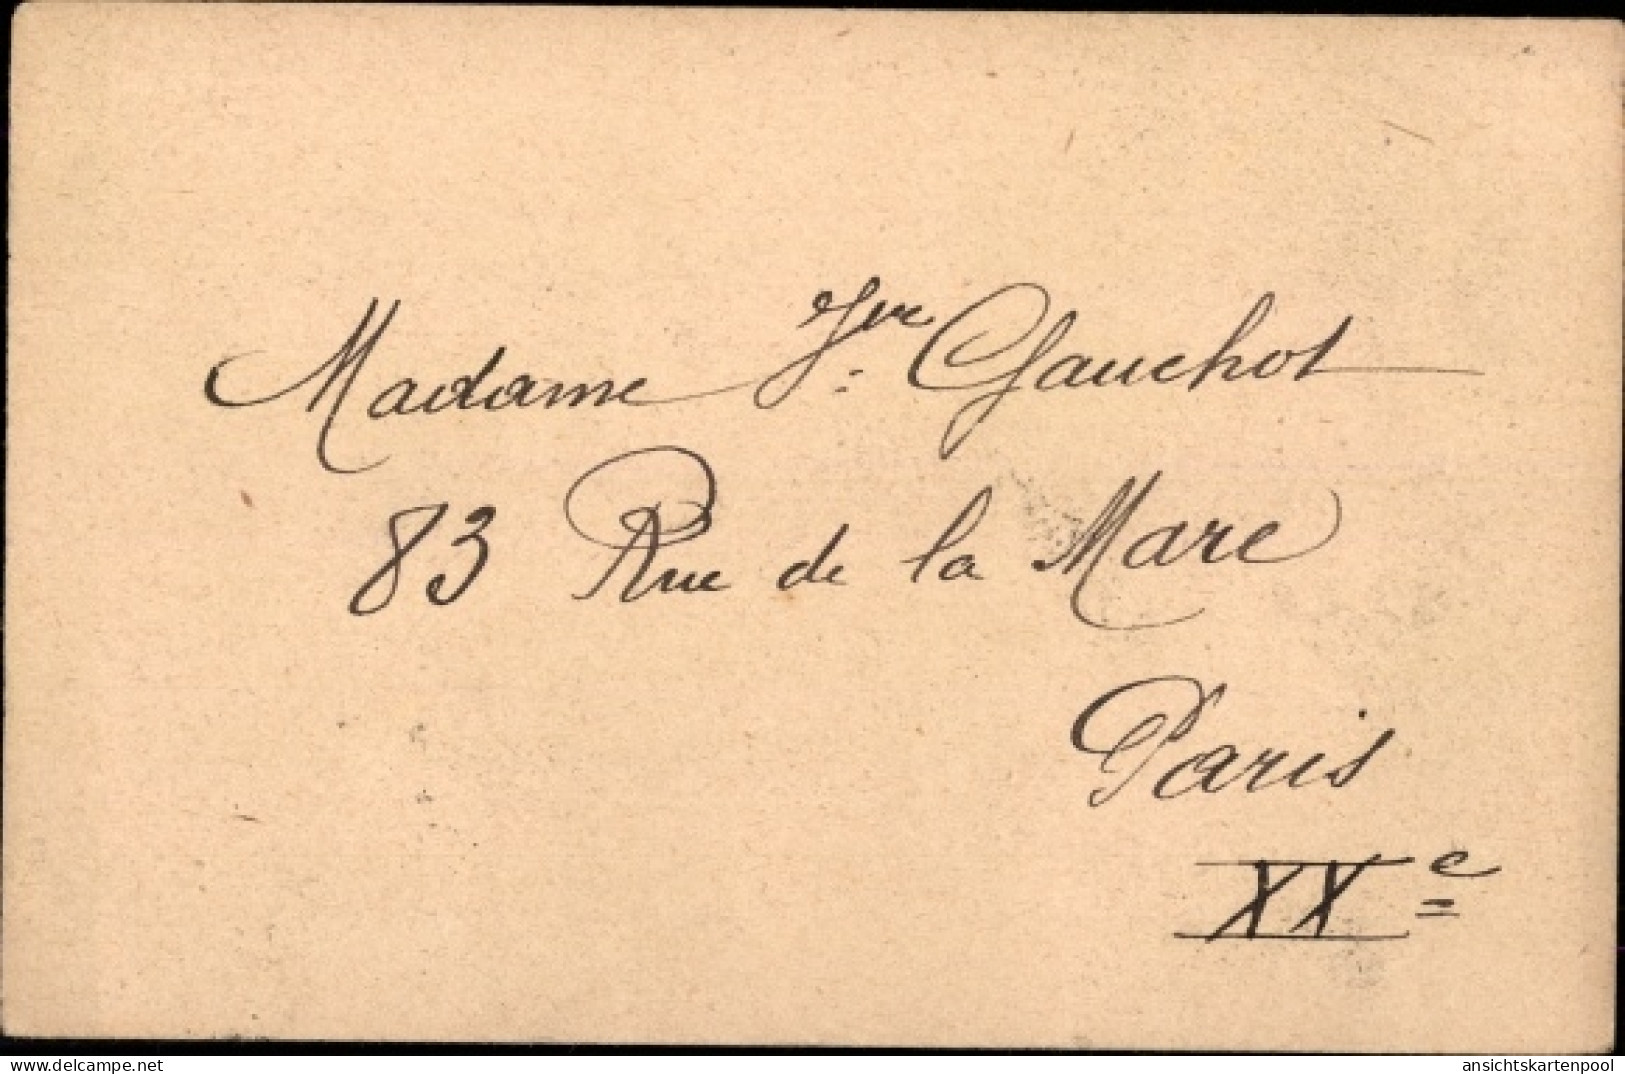 Madame Jne Gauchot
83 Rue de la Mare
Paris
XXe
delcampe.net
ansichtskartenpool